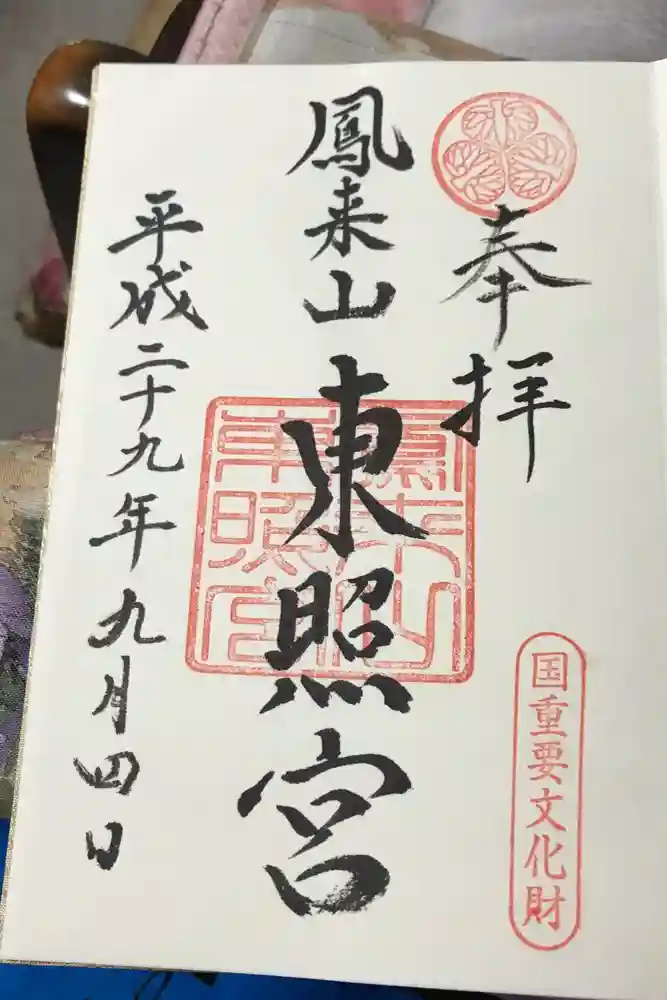 奉拝
鳳来山
東照宮
鳳来山
東照宮
国重要文化財
平成二十九年九月四日